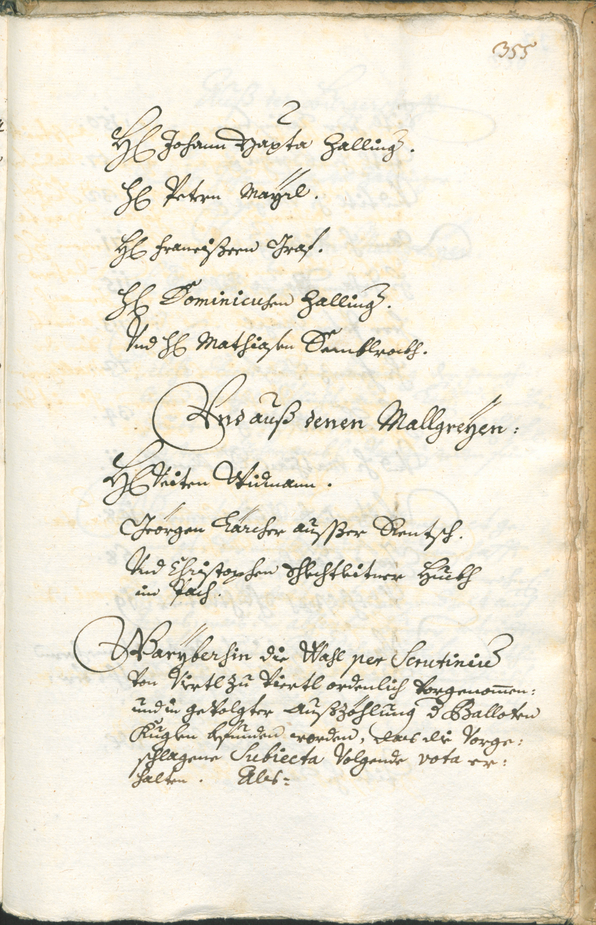 355
H: Johann Bapta Zalling.
H: Petern Mayrl.
H: Francißcen Graf.
H: Dominicusen Zalling.
Vnd H: Mathiasen Semblrockh.
Vnd auß denen Mallgreyen:
H: Veiten Widmann.
Georgen Karcher ausser Rentsch.
Vnd Christophen Schlechtleitner Hueth
im Fach.
Warüberhin die Wahl per Scrutiniu
von Viertl zu Viertl ordenlich vorgenomen:
und in gevolgter Außzöhlung d Balloten
Kuglen befunden worden, das die vorge:
schlagene Subiecta volgende vota er:
halten. Als: